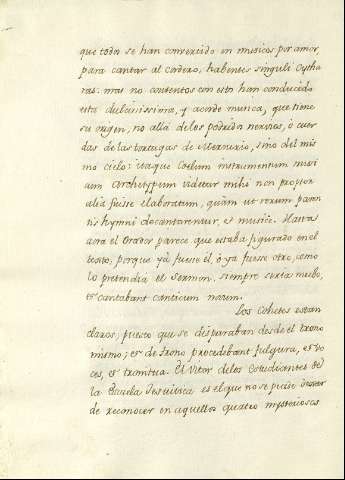 que todos se han convertido en musicos por amor,
para cantar al cordero, habentes singuli Cytha
ras: mas no contentos con esto han conducido
esta dulcissima, y acorde musica, que tiene
su origen, no allá de los podridos nervios, ó cuer
das de las tortugas de Mercurio, sino del mis
mo cielo: itaque Coelum instrumentum musi
cum Archetypum videtur mihi non propter
aliâ fuisse elaboratum, quàm ut rerum paren
tis hymni decantarentur, et musicè. Hasta
aora el Orador parece que estaba figurado en el
texto; porque yà fuese él, ó yà fuese otro, como
lo pretendia el sermon, siempre seria nuebo,
et cantabant canticum novum.
Los Cohetes estan
claros; puesto que se disparaban desde el trono
mismo; et de trono procedebant fulgura, et vo
ces, et tronitua. El Vitor de los Estudiantes de
la Escuela Jesuitica es el que no se puede dexar
de reconocer en aquellos quatro mysteriosos